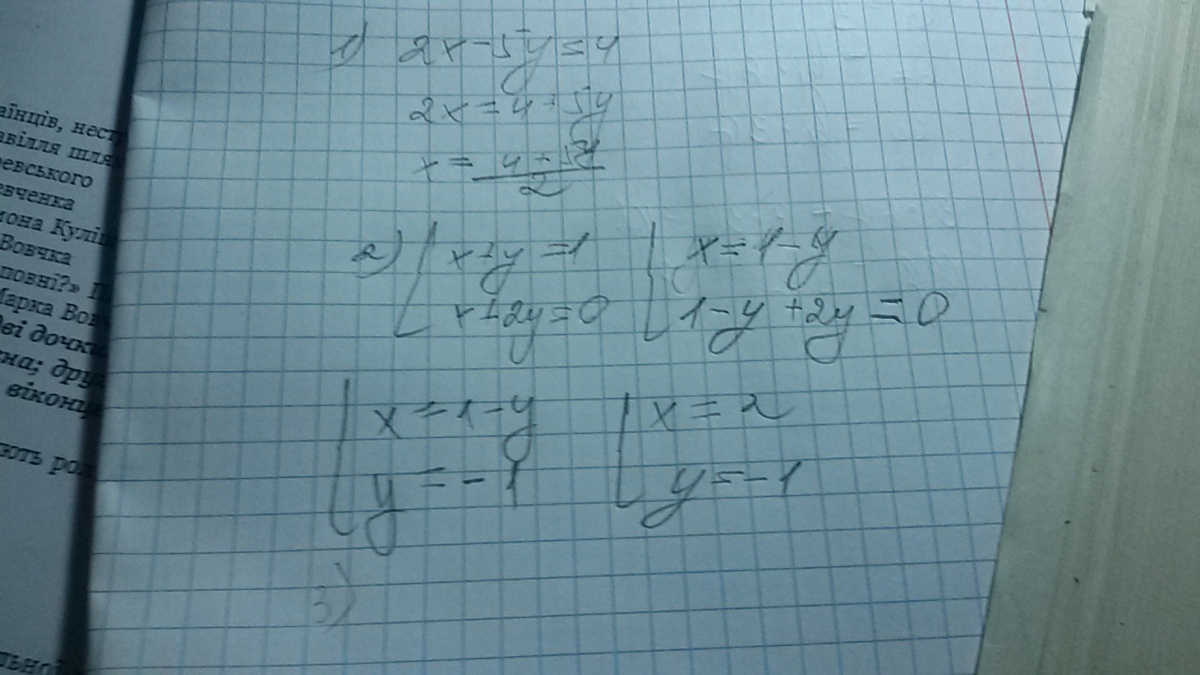 аїнців, нест
авілля шля
ревського
евченка
мона Куліш
Вовчка
повні?»
Марка Вов
Дві дочки
на; друг
віконце
ють род
льной
1) 2x-5y=4
2x=4+5y
x=\frac{4+5y}{2}
2) { x+y=1 { x=1-y
x+2y=0 1-y+2y=0
{ x=1-y { x=2
y=-1 y=-1
3)